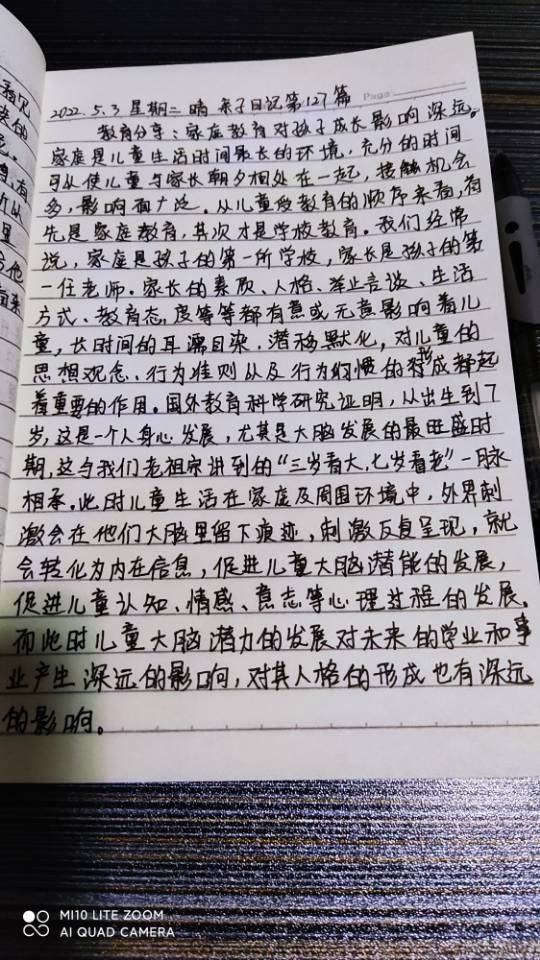 Page
2022.5.3 星期二 晴 亲子日记第127篇
教育分享:家庭教育对孩子成长影响深远。
家庭是儿童生活时间最长的环境,充分的时间
可以使儿童与家长朝夕相处在一起,接触机会
多,影响面广泛。从儿童受教育的顺序来看,首
先是家庭教育,其次才是学校教育。我们经常
说,家庭是孩子的第一所学校,家长是孩子的第
一任老师。家长的素质、人格、举止言谈、生活
方式、教育态度等等都有意或无意影响着儿
童,长时间的耳濡目染、潜移默化,对儿童的
思想观念、行为准则以及行为习惯的形成都起
着重要的作用。国外教育科学研究证明,从出生到7
岁,这是一个人身心发展,尤其是大脑发展的最旺盛时
期,这与我们老祖宗讲到的“三岁看大,七岁看老”一脉
相承。此时儿童生活在家庭及周围环境中,外界刺
激会在他们大脑里留下痕迹,刺激反复呈现,就
会转化为内在信息,促进儿童大脑潜能的发展,
促进儿童认知、情感、意志等心理过程的发展。
而此时儿童大脑潜力的发展对未来的学业和事
业产生深远的影响,对其人格的形成也有深远
的影响。
MI10 LITE ZOOM
AI QUAD CAMERA